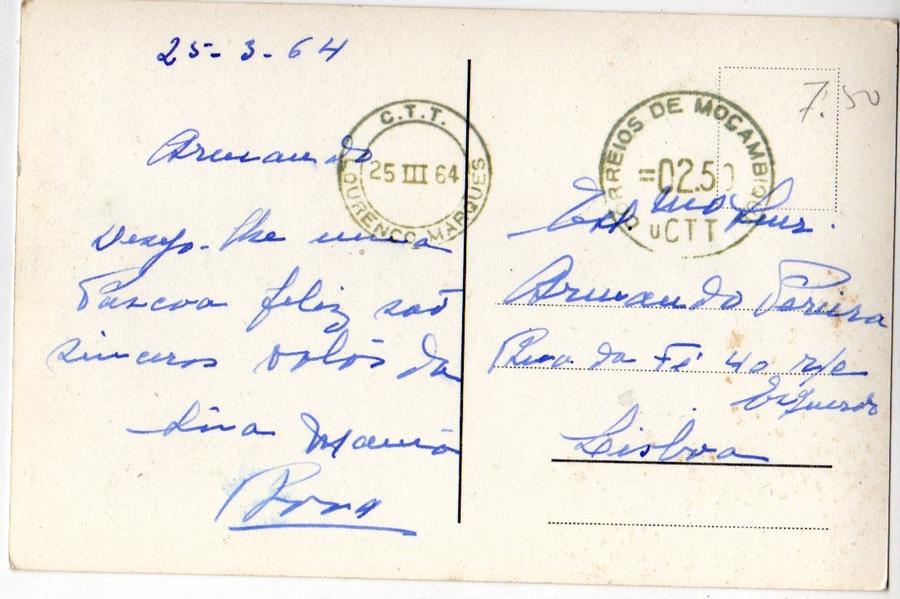 25-3-64
C.T.T.
25 III 64
LOURENÇO MARQUES
Armando
Desejo-lhe uma
Pascoa feliz são
sinceros votos da
Maria
Rosa
7.50
CORREIOS DE MOÇAMBIQUE
=02.50
CTT
Exmo Snr.
Armando Pereira
Rua da Fé 40 r/c
Esquerdo
Lisboa